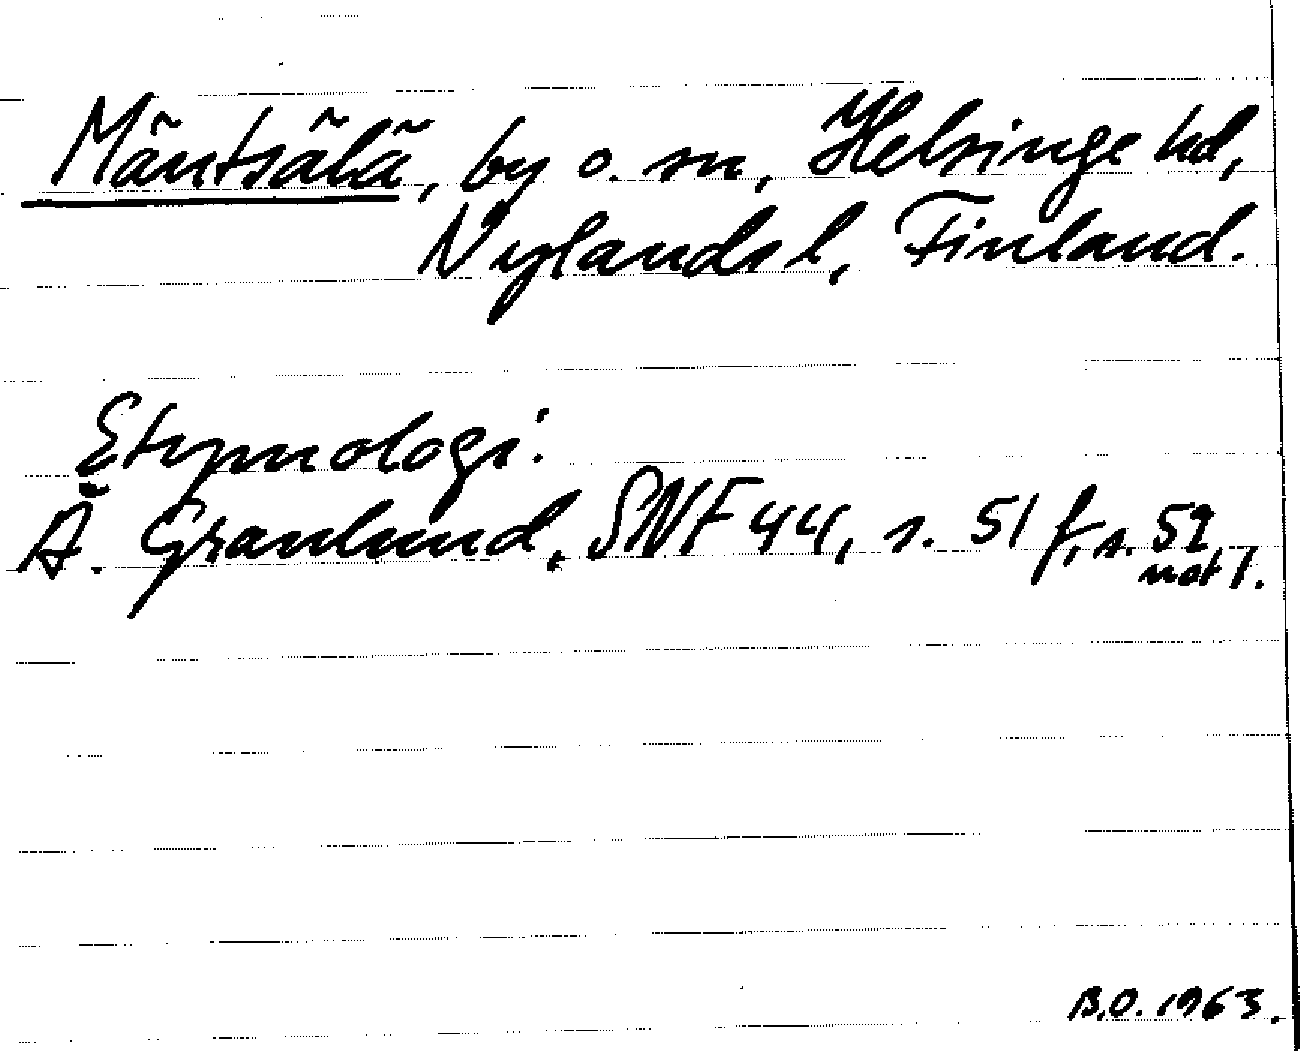 Mäntsälä, by o. sn, Helsinge hd,
Nylands l, Finland.
Etymologi:
Å. Granlund, SNF 44, s. 51 f, s. 52
not 1.
B.O. 1963.